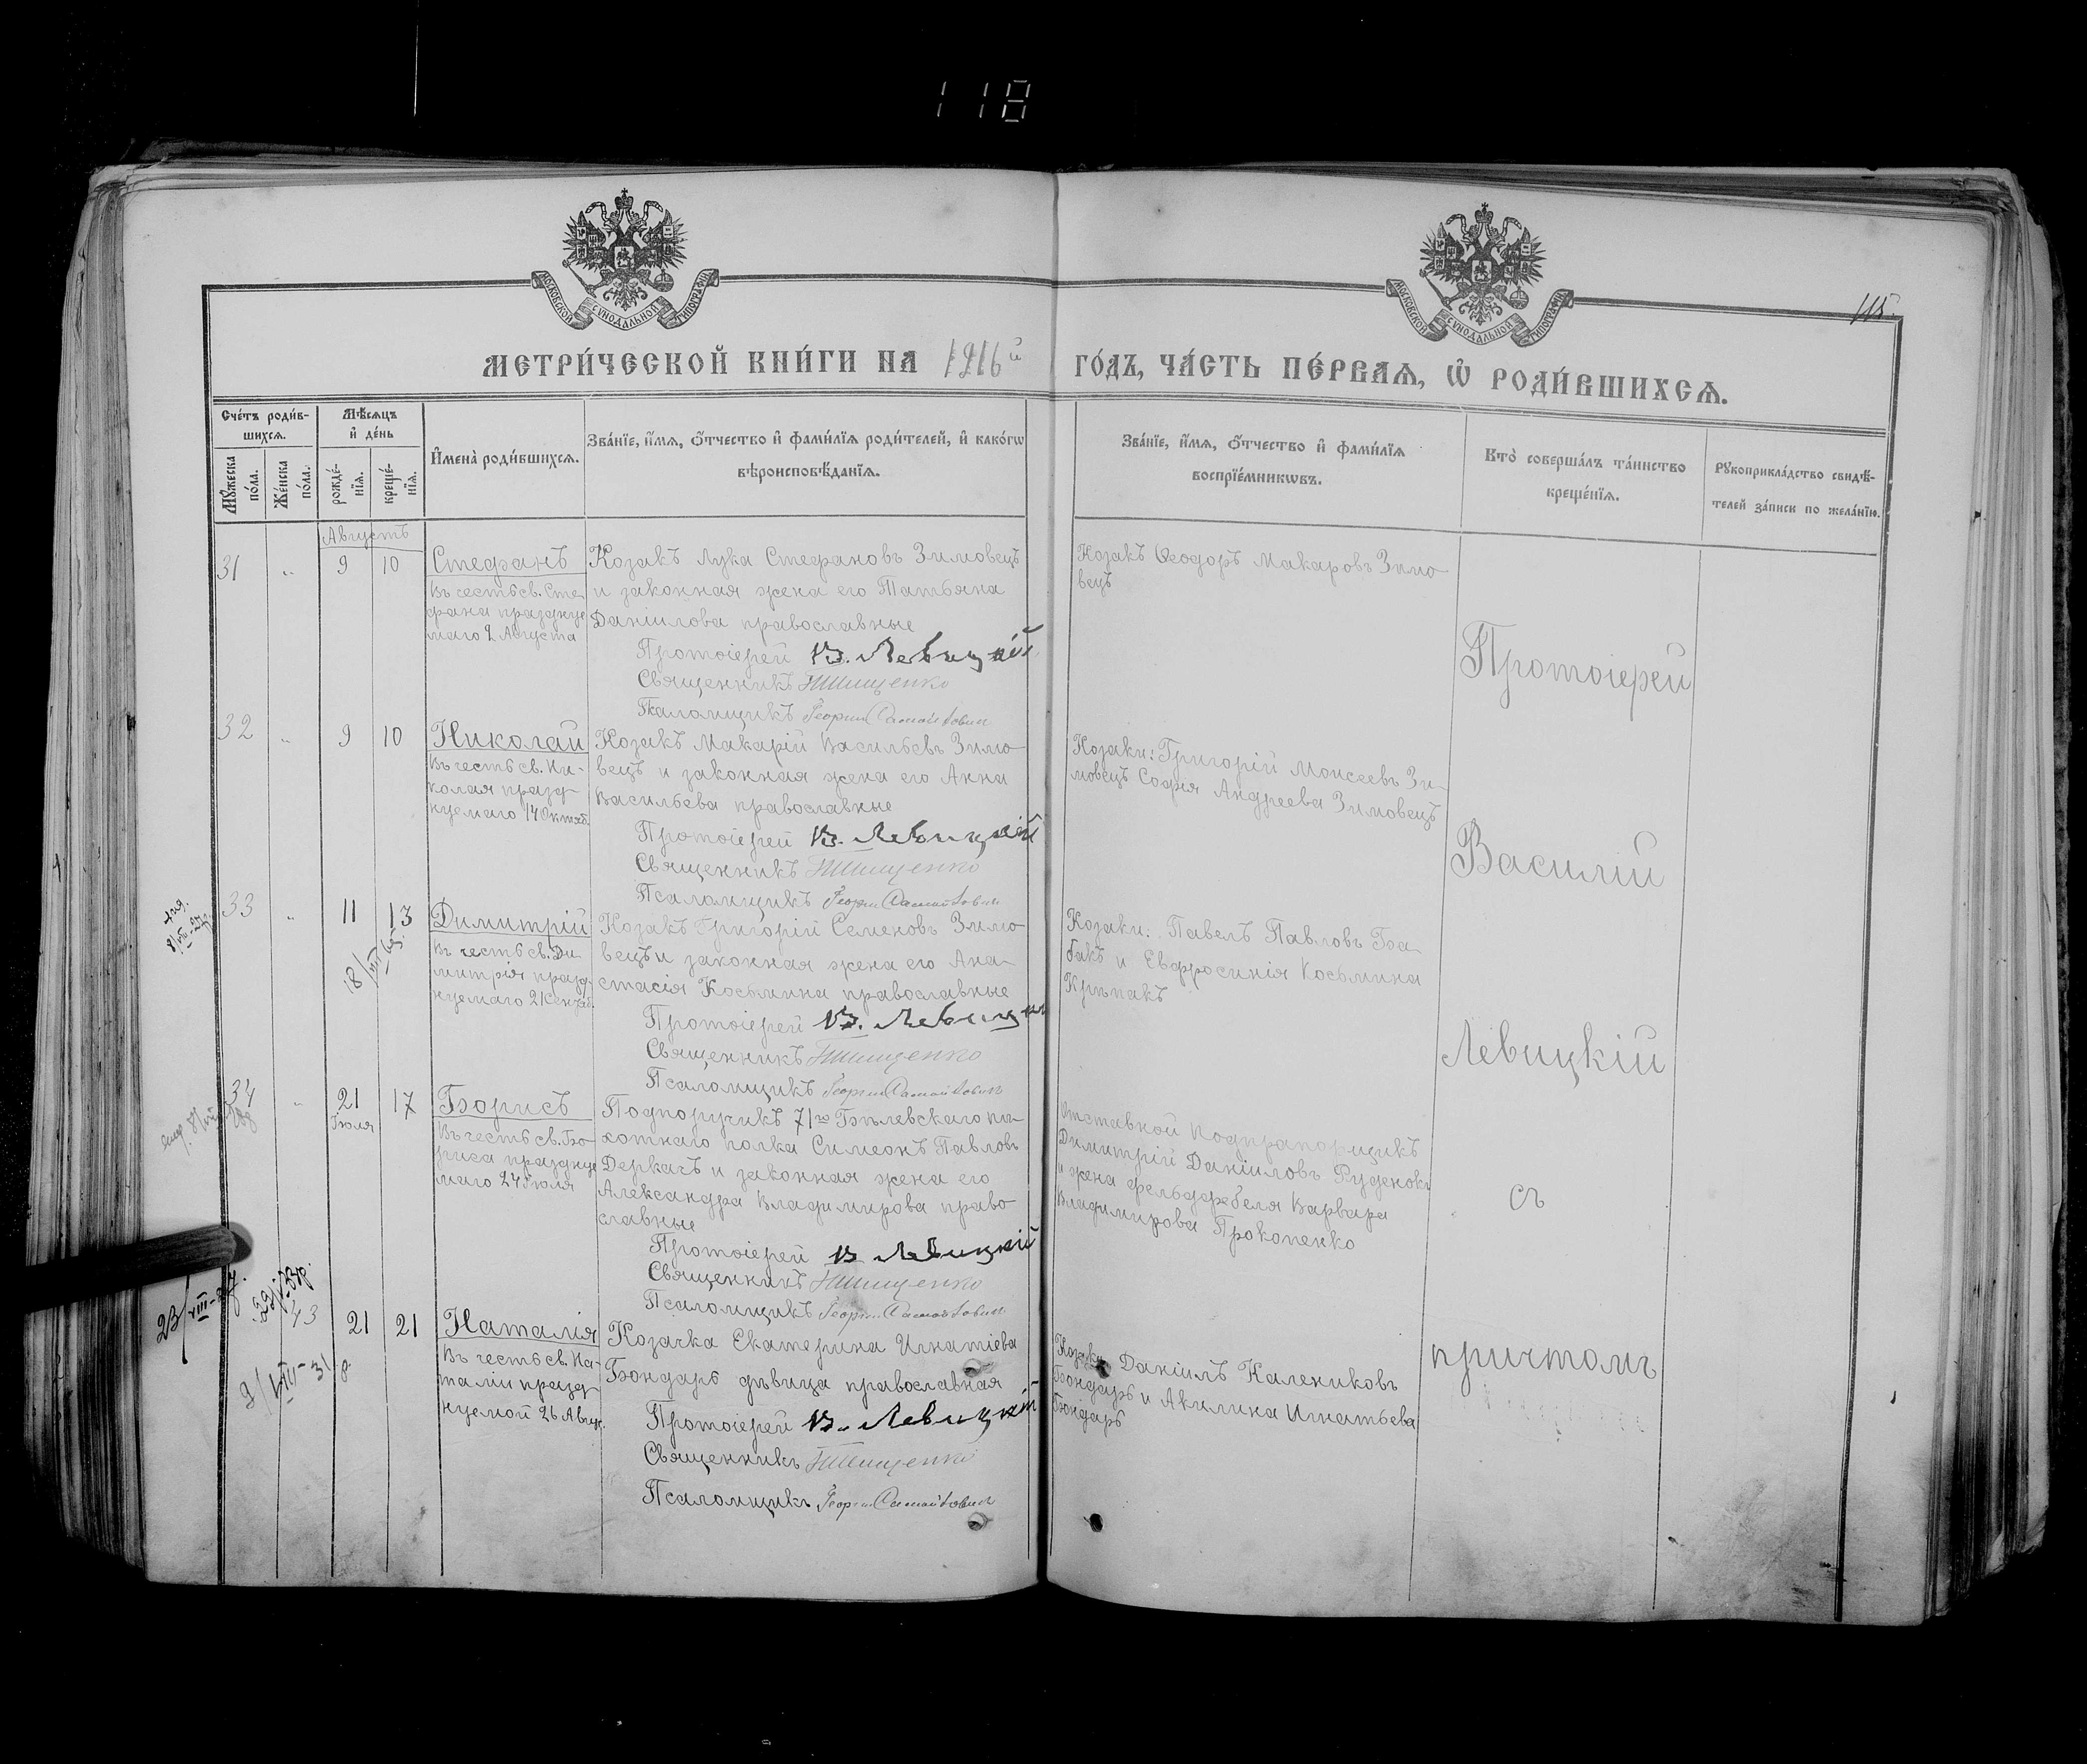 118
МОСКОВСКОЙ СУНОДАЛЬНОЙ ТИПОГРАФІИ
МОСКОВСКОЙ СУНОДАЛЬНОЙ ТИПОГРАФІИ
115.
МЕТРИ́ЧЕСКОЙ КНИ́ГИ НА 1916й ГО́ДЪ, ЧА́СТЬ ПЕ́РВАЯ, Ѽ РОДИ́ВШИХСЯ.
Сче́тъ роди́в-
шихся.
Мѣсяцъ
и де́нь
Мужеска
по́ла.
Же́нска
по́ла.
рожде́-
нїя.
креще́-
нїя.
Имена̀ роди́вшихся.
Зва́нїе, и́мя, ѻ҆́тчество и фами́лїя роди́телей, и како́гѡ
вѣроисповѣ́данїя.
Зва́нїе, и́мя, ѻ҆́тчество и фами́лїя
воспрїе́мникѡвъ.
Кто̀ соверша́лъ та́инство
креще́нїя.
Рукоприкла́дство свидѣ́-
телей за́писи по жела́нїю.
Августъ
31 „ 9 10
Стефанъ
Въ честь св. Сте-
фана праздную
маго 2 Августа
Козакъ Лука Стефановъ Зимовецъ
и законная жена его Татьяна
Даніилова православные
Протоіерей В. Левицкій
Священникъ
Псаломщикъ Георгій
Козакъ Ѳеодоръ Макаровъ Зимо
вецъ
32 „ 9 10
Николай
Въ честь св. Ни-
колая празд-
нуемаго 14 Октяб.
Козакъ Макарій Васильевъ Зимо-
вецъ и законная жена его Анна
Васильева православные
Протоіерей В. Левицкій
Священникъ
Псаломщикъ Георгій
Козаки: Григорій Моисеевъ Зи-
мовецъ Софія Андреева Зимовецъ
33 „ 11 13
Димитрій
Въ честь св. Ди-
митрія празд-
нуемаго 21 Сентяб.
Козакъ Григорій Семеновъ Зимо
вецъ и законная жена его Ана-
стасія Косьмина православные
Протоіерей В. Левицкій
Священникъ
Псаломщикъ Георгій
Козаки: Павелъ Павловъ Ба-
бакъ и Евфросинія Косьмина
34 „ 21 17
Іюля
Борисъ
Въ честь св. Бо-
риса праздную
маго 24 Іюля
Подпоручикъ 71го Бѣлевскаго пѣ-
хотнаго полка Симеонъ Павловъ
Деркачъ и законная жена его
Александра Владимирова право
славные
Протоіерей В. Левицкій
Священникъ
Псаломщикъ Георгій
Отставной подпрапорщикъ
Димитрій Даніиловъ Руденокъ
и жена фельдфебеля Варвара
Владимирова Прокопенко
43 21 21
Наталія
Въ честь св. На-
таліи празд-
нуемой 26 Авгус.
Козачка Екатерина Игнатіева
Бондарь дѣвица православная
Протоіерей В. Левицкій
Священникъ
Псаломщикъ Георгій
Козаки Даніилъ Калениковъ
Бондарь и Акилина Игнатьева
Бондарь
Протоіерей
Василій
Левицкій
съ
причтомъ